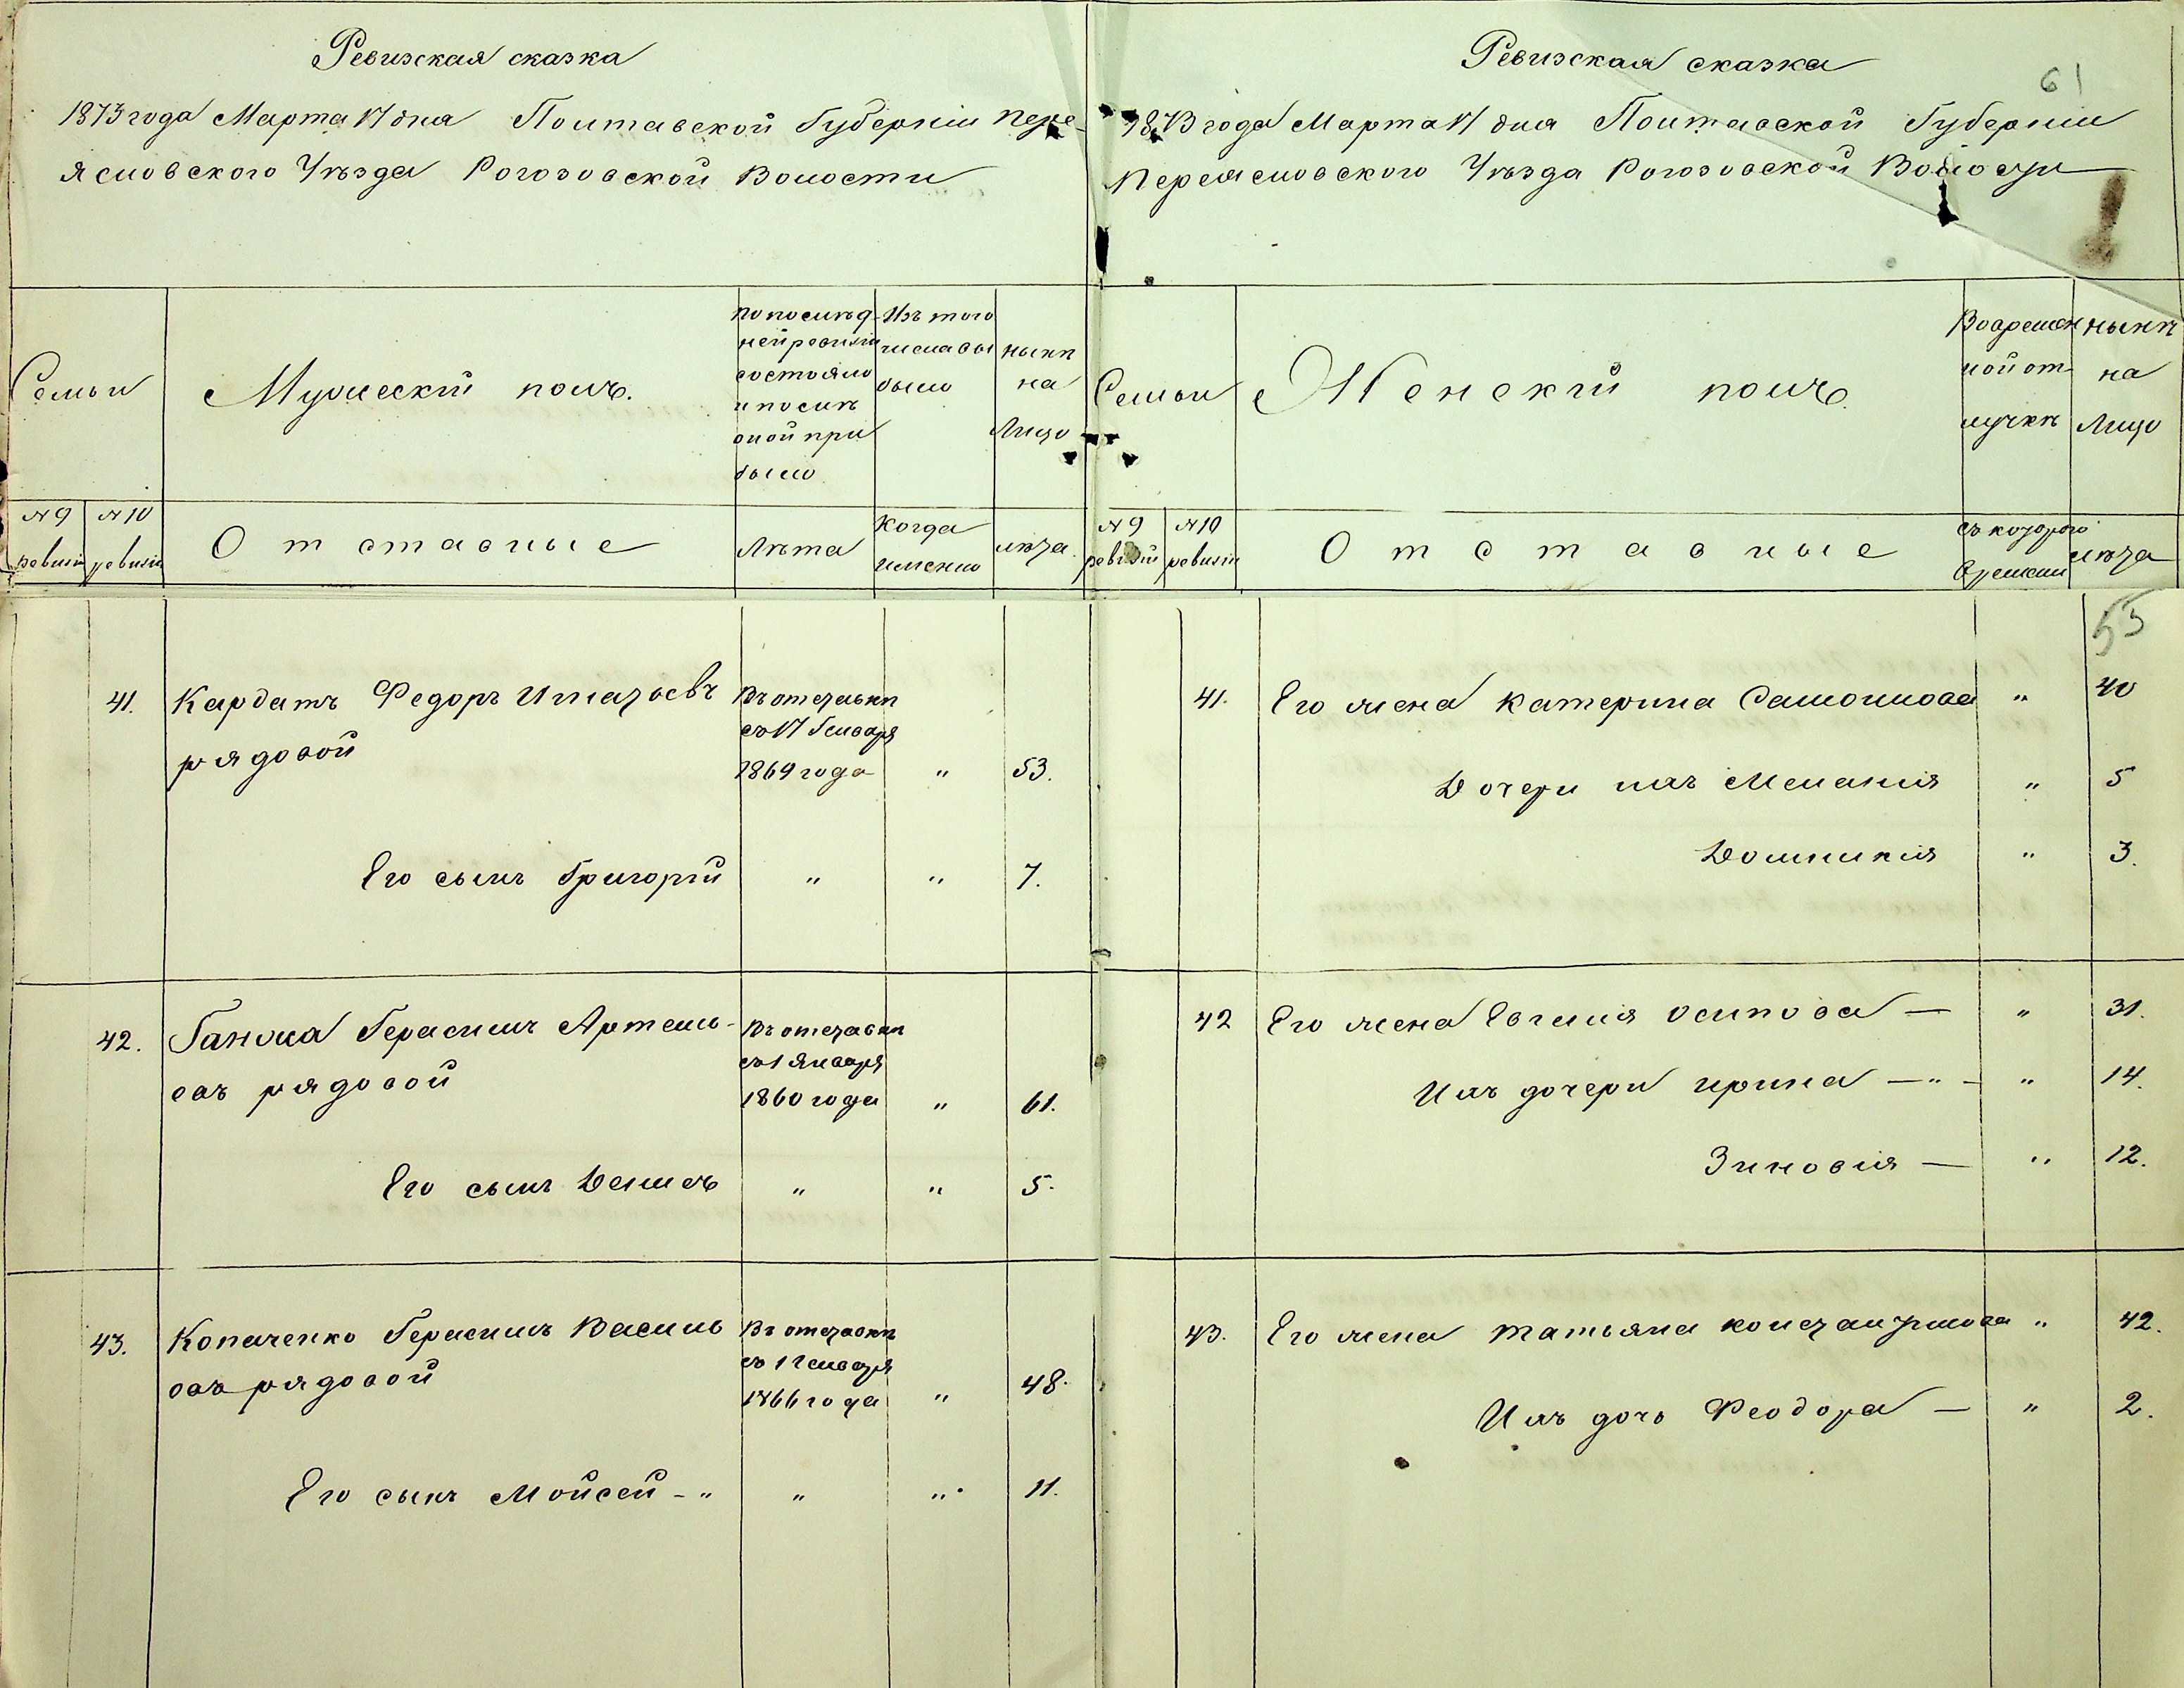 Ревизская сказка
1873 года Марта 17 дня Полтавской Губерніи Пере-
яславского Уѣзда Рогозовской Волости
Семьи
Мужескій полъ.
по послѣд-
ней ревизіи
состояло
и послѣ
оной при
было
Изъ того
числа вы
было
нынѣ
на
Лицо
№ 9
ревизіи
№ 10
ревизіи
Отставные
Лѣта
Когда
именно
лѣта.
41. Кардашъ Федоръ
рядовой
Въ отставкѣ
съ 17 Генваря
1869 года " 53.
Его сынъ Григорій " " 7.
42. Ганжа Герасимъ Артемь-
евъ рядовой
Въ отставкѣ
съ 1 Января
1860 года " 61.
Его сынъ Денисъ " " 5.
43. Копаченко Герасимъ Василь
евъ рядовой
Въ отставкѣ
съ 1 Генваря
1866 года " 48.
Его сынъ Мойсей - " " " 11.
Ревизская сказка
61
1873 года Марта 17 дня Полтавской Губерніи
Переяславского Уѣзда Рогозовской Волости
Семьи
Женскій полъ.
Во времен
ной от
лучкѣ
нынѣ
на
Лицо
№ 9
ревизіи
№ 10
ревизіи
Отставные
съ которого
времени
лѣта
55
41. Его жена Катерина " 40
Дочери ихъ Меланія " 5
Домникія " 3.
42 Его жена Евгенія Осипова — " 31.
Ихъ дочери Ирина — " — " 14.
Зиновія — " 12.
43. Его жена Татьяна Константинова " 42.
Ихъ дочь Феодора — " 2.